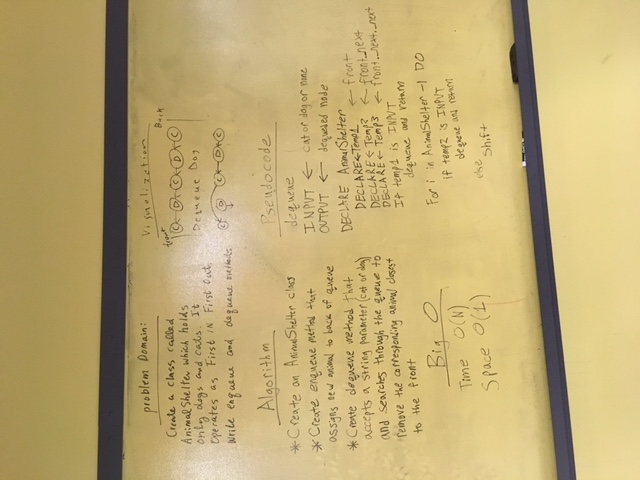 problem Domain:
Create a class called
AnimalShelter which holds
only dogs and cats. It
Operates as First IN First Out.
Write enqueue and dequeue methods
Visualization
front
Back
C D C D C
Dequeue Dog
C D C D C
Algorithm
* Create an AnimalShelter class
* Create enqueue method that
assigns new animal to back of queue
* Create dequeue method that
accepts a String parameter (cat or dog)
and searches through the queue to
remove the corresponding animal closest
to the front
Big O
Time O(N)
Space O(1)
Pseudocode
dequeue
INPUT ← cat or dog or none
OUTPUT ← dequeued node
DECLARE AnimalShelter
DECLARE ← Temp1 ← front
DECLARE ← Temp2 ← front._next
DECLARE ← Temp3 ← front._next._next
If temp1 is INPUT
dequeue and return
For i in AnimalShelter -1 DO
if temp2 is INPUT
dequeue and return
else
Shift